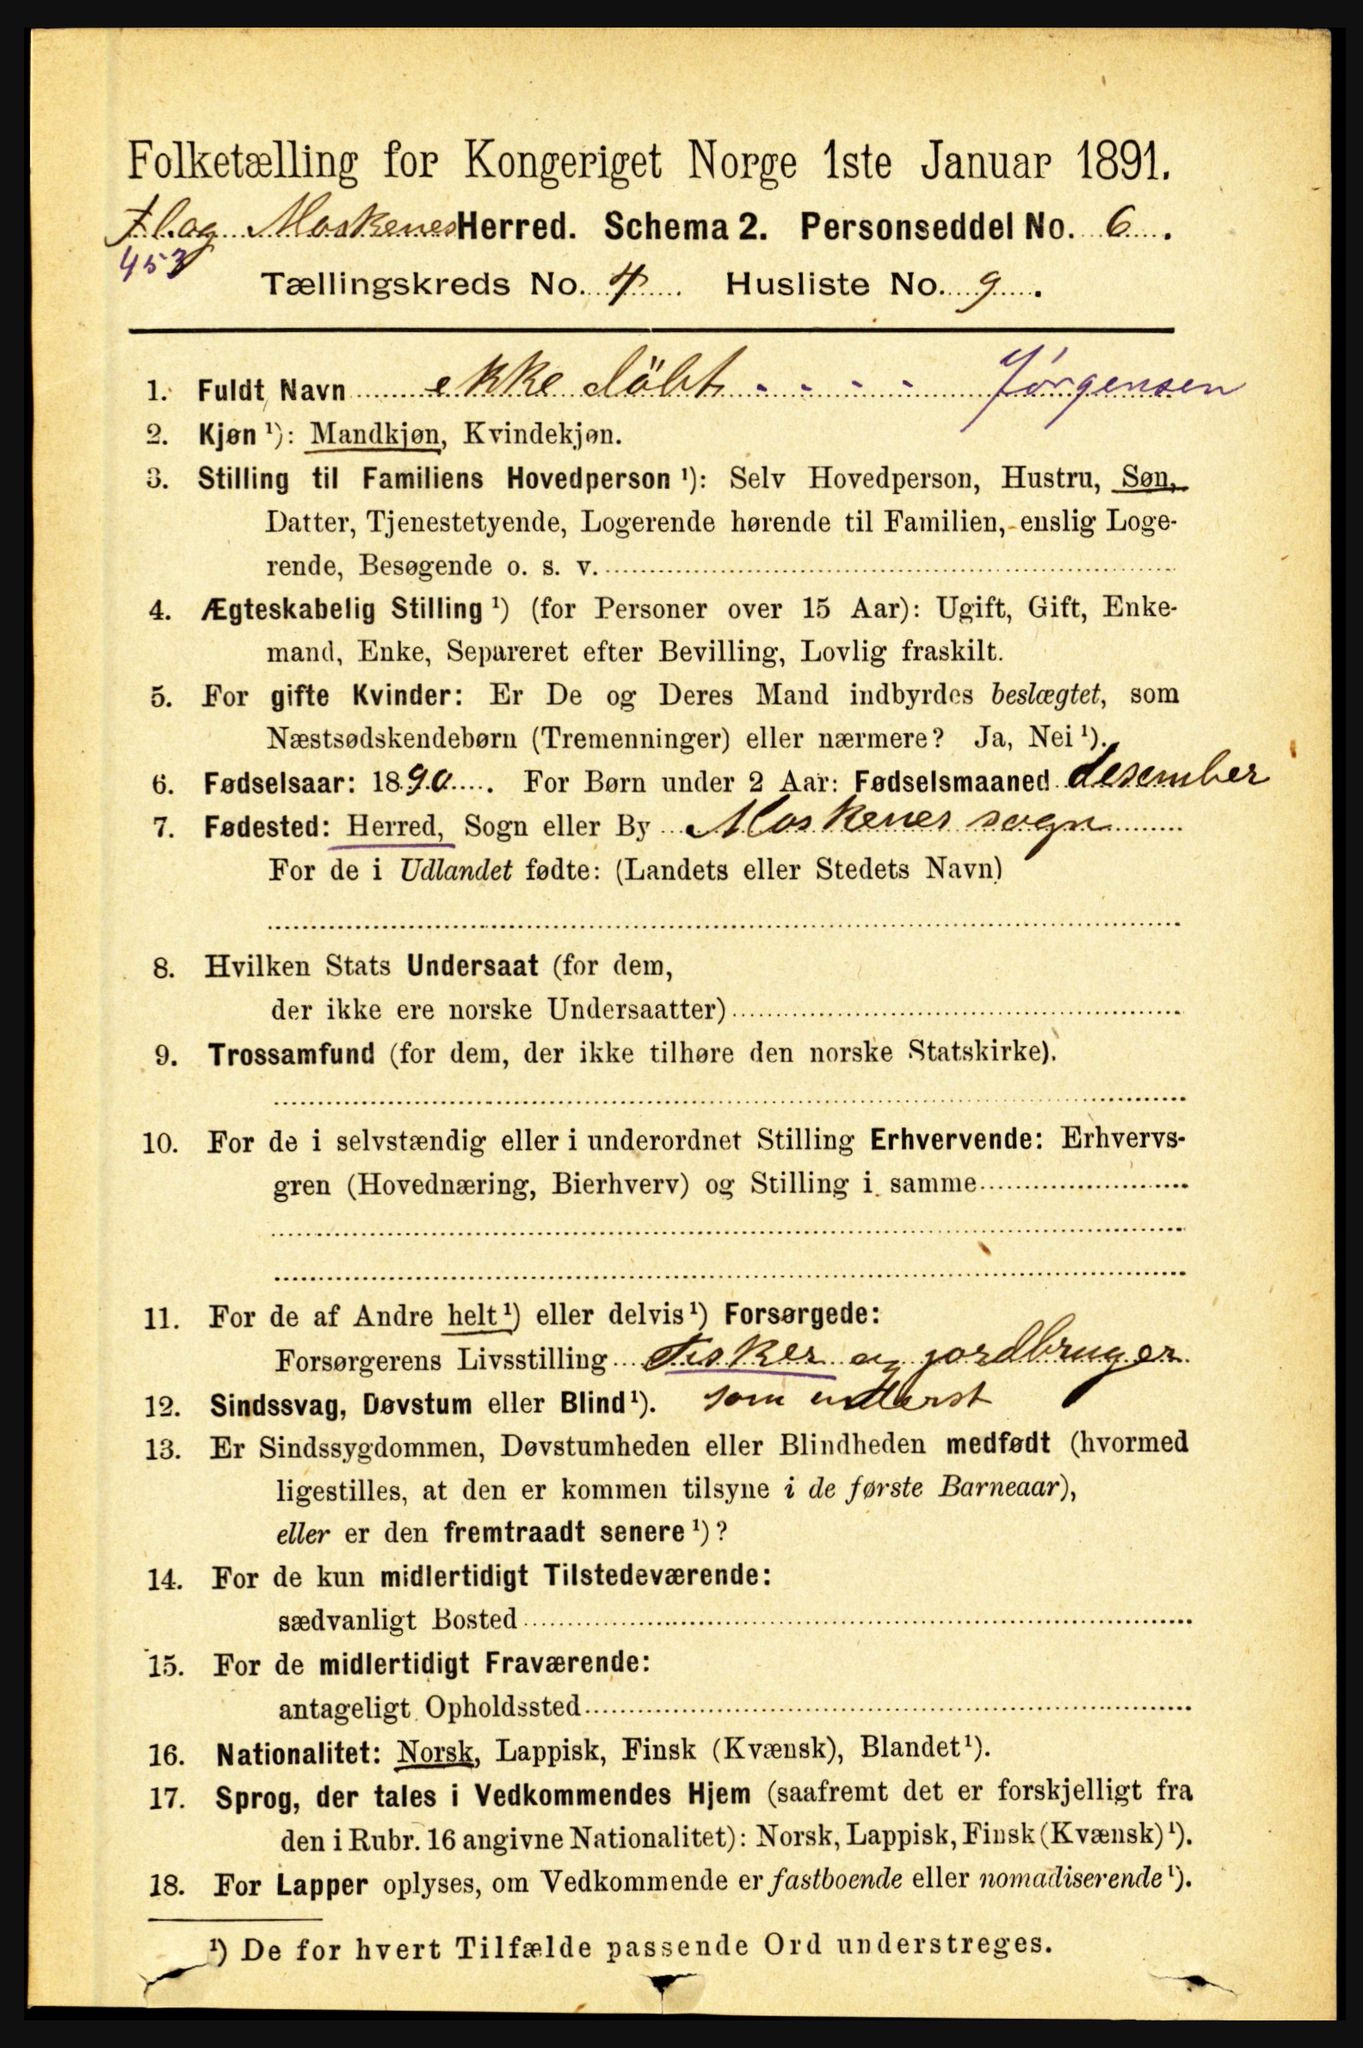 Folketælling for Kongeriget Norge 1ste Januar 1891.
Fl. og Moskenes Herred. Schema 2. Personseddel No. 6.
453
Tællingskreds No. 4 Husliste No. 9.
1. Fuldt Navn ekke döbt - - - - Jørgensen
2. Kjøn ¹): Mandkjøn, Kvindekjøn.
3. Stilling til Familiens Hovedperson ¹): Selv Hovedperson, Hustru, Søn,
Datter, Tjenestetyende, Logerende hørende til Familien, enslig Loge-
rende, Besøgende o. s. v.
4. Ægteskabelig Stilling ¹) (for Personer over 15 Aar): Ugift, Gift, Enke-
mand, Enke, Separeret efter Bevilling, Lovlig fraskilt.
5. For gifte Kvinder: Er De og Deres Mand indbyrdes beslægtet, som
Næstsødskendebørn (Tremenninger) eller nærmere? Ja, Nei ¹).
6. Fødselsaar: 1890. For Børn under 2 Aar: Fødselsmaaned desember
7. Fødested: Herred, Sogn eller By Moskenes sogn
For de i Udlandet fødte: (Landets eller Stedets Navn)
8. Hvilken Stats Undersaat (for dem,
der ikke ere norske Undersaatter)
9. Trossamfund (for dem, der ikke tilhøre den norske Statskirke).
10. For de i selvstændig eller i underordnet Stilling Erhvervende: Erhvervs-
gren (Hovednæring, Bierhverv) og Stilling i samme
11. For de af Andre helt ¹) eller delvis ¹) Forsørgede:
Forsørgerens Livsstilling Fisker og jordbruger
12. Sindssvag, Døvstum eller Blind ¹). som inderst
13. Er Sindssygdommen, Døvstumheden eller Blindheden medfødt (hvormed
ligestilles, at den er kommen tilsyne i de første Barneaar),
eller er den fremtraadt senere ¹)?
14. For de kun midlertidigt Tilstedeværende:
sædvanligt Bosted
15. For de midlertidigt Fraværende:
antageligt Opholdssted
16. Nationalitet: Norsk, Lappisk, Finsk (Kvænsk), Blandet ¹).
17. Sprog, der tales i Vedkommendes Hjem (saafremt det er forskjelligt fra
den i Rubr. 16 angivne Nationalitet): Norsk, Lappisk, Finsk (Kvænsk) ¹).
18. For Lapper oplyses, om Vedkommende er fastboende eller nomadiserende ¹).
¹) De for hvert Tilfælde passende Ord understreges.